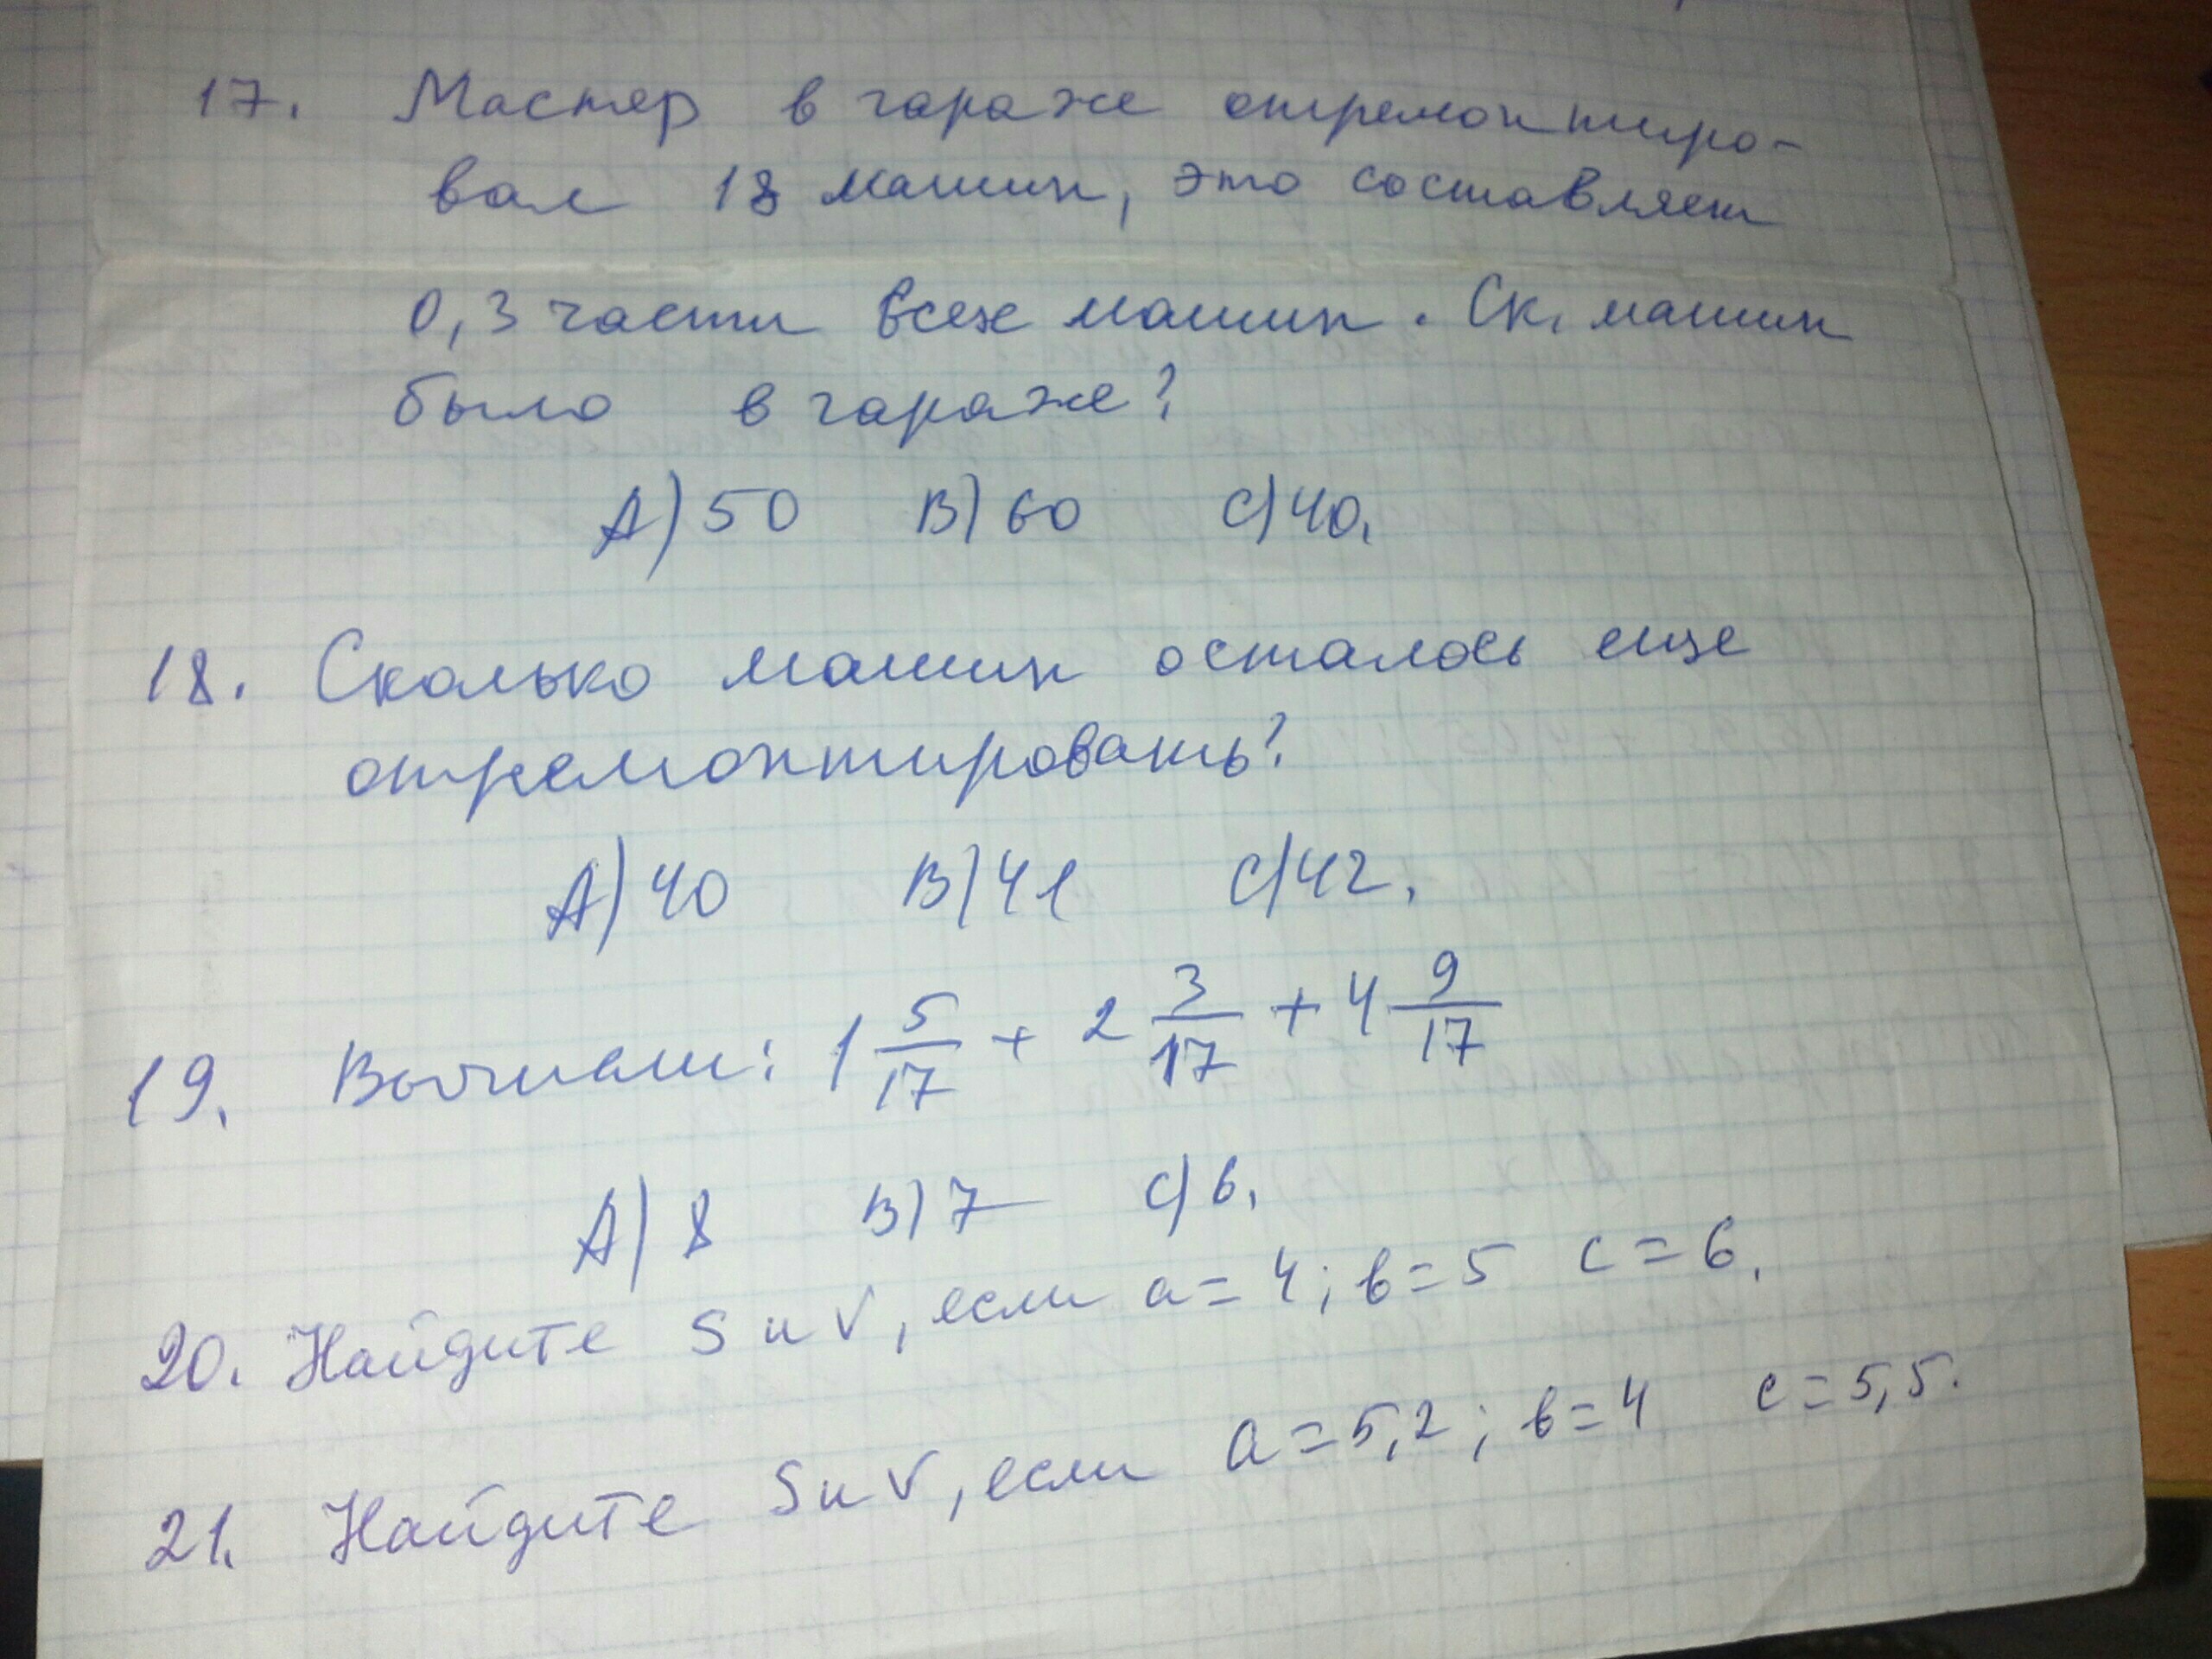 17. Мастер в гараже отремонтиро-
вал 18 машин, это составляет
0,3 части всех машин. Ск. машин
было в гараже?
А) 50 В) 60 С) 40.
18. Сколько машин осталось еще
отремонтировать?
А) 40 В) 41 С) 42.
19. Вычисли: 1 5/17 + 2 3/17 + 4 9/17
А) 8 В) 7 С) 6.
20. Найдите S и V, если a = 4; в = 5 c = 6.
21. Найдите S и V, если a = 5,2; в = 4 c = 5,5.